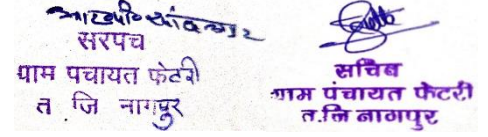 सरपच
ग्राम पचायत फेटरी
त जि नागपुर
सचिव
ग्राम पंचायत फेटरी
त.जि नागपुर